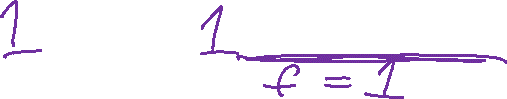 1 1
f = 1